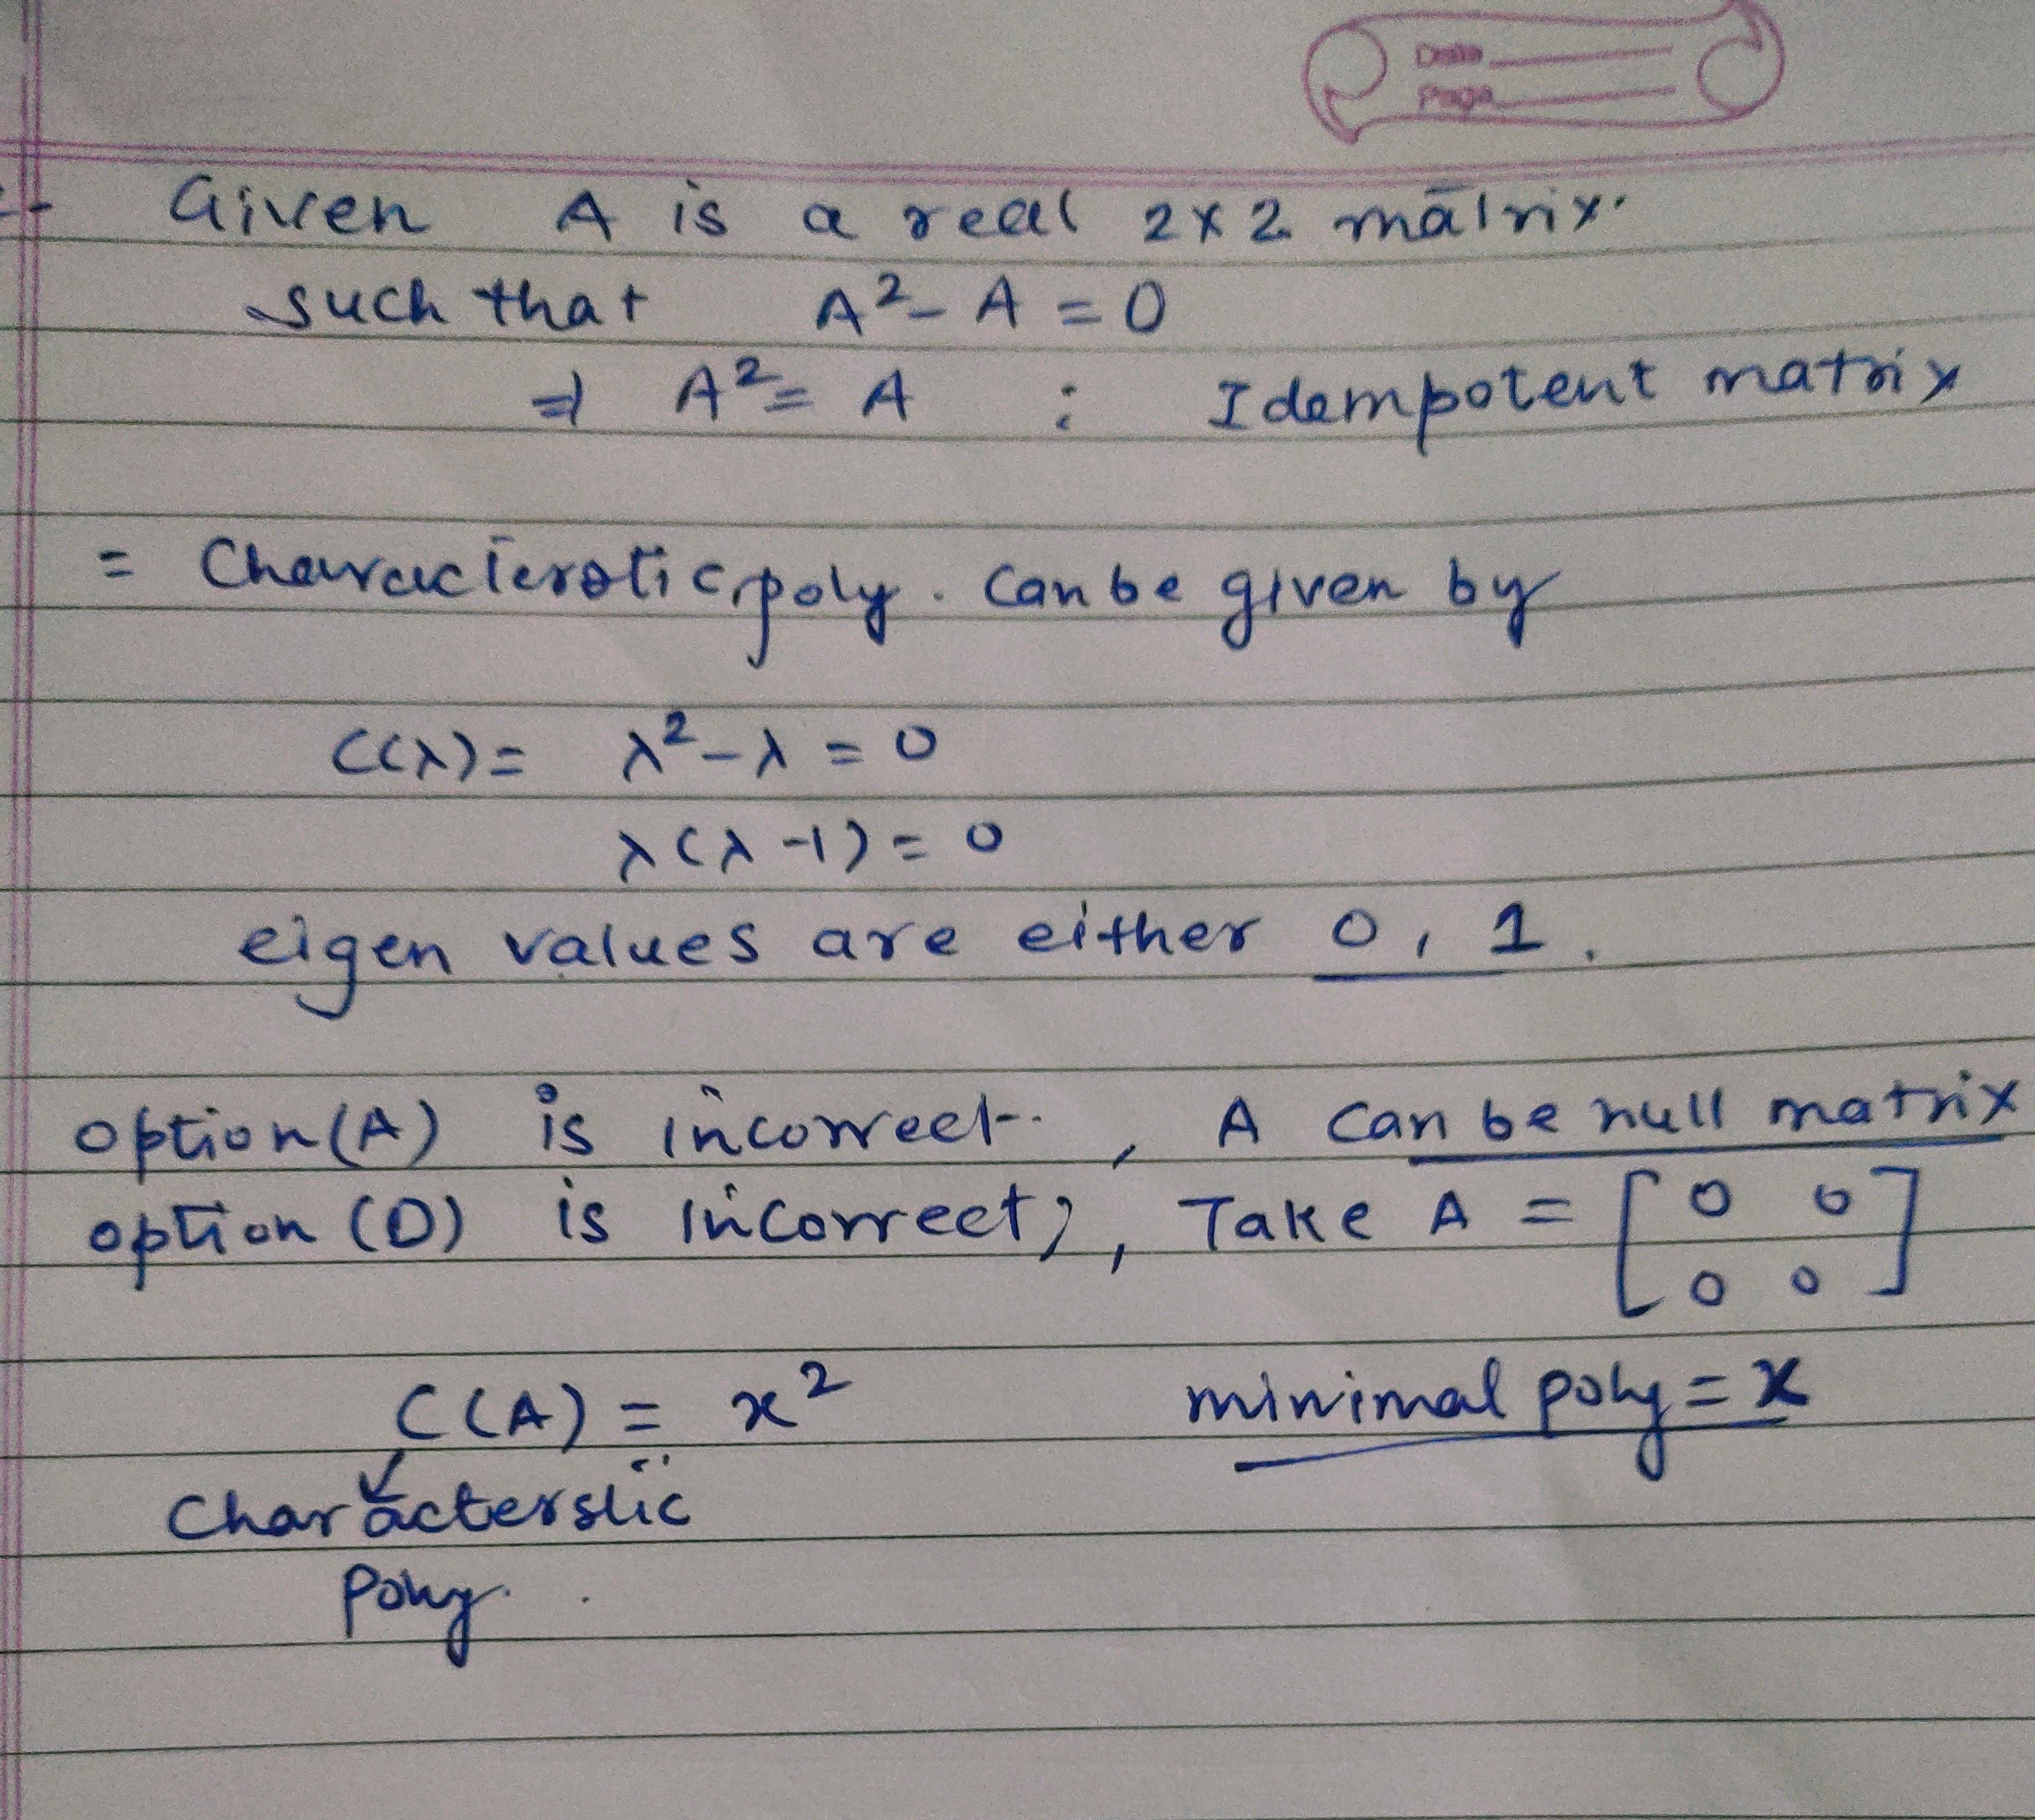 Date
Page
Given A is a real 2x2 matrix.
such that A² - A = 0
⇒ A² = A : Idempotent matrix
= Characterstic poly. Can be given by
C(λ) = λ² - λ = 0
λ(λ-1) = 0
eigen values are either 0, 1.
option (A) is incorrect. , A can be null matrix
option (D) is incorrect, Take A = [0 0
0 0]
C(A) = x² minimal poly = x
Characterstic
Poly.